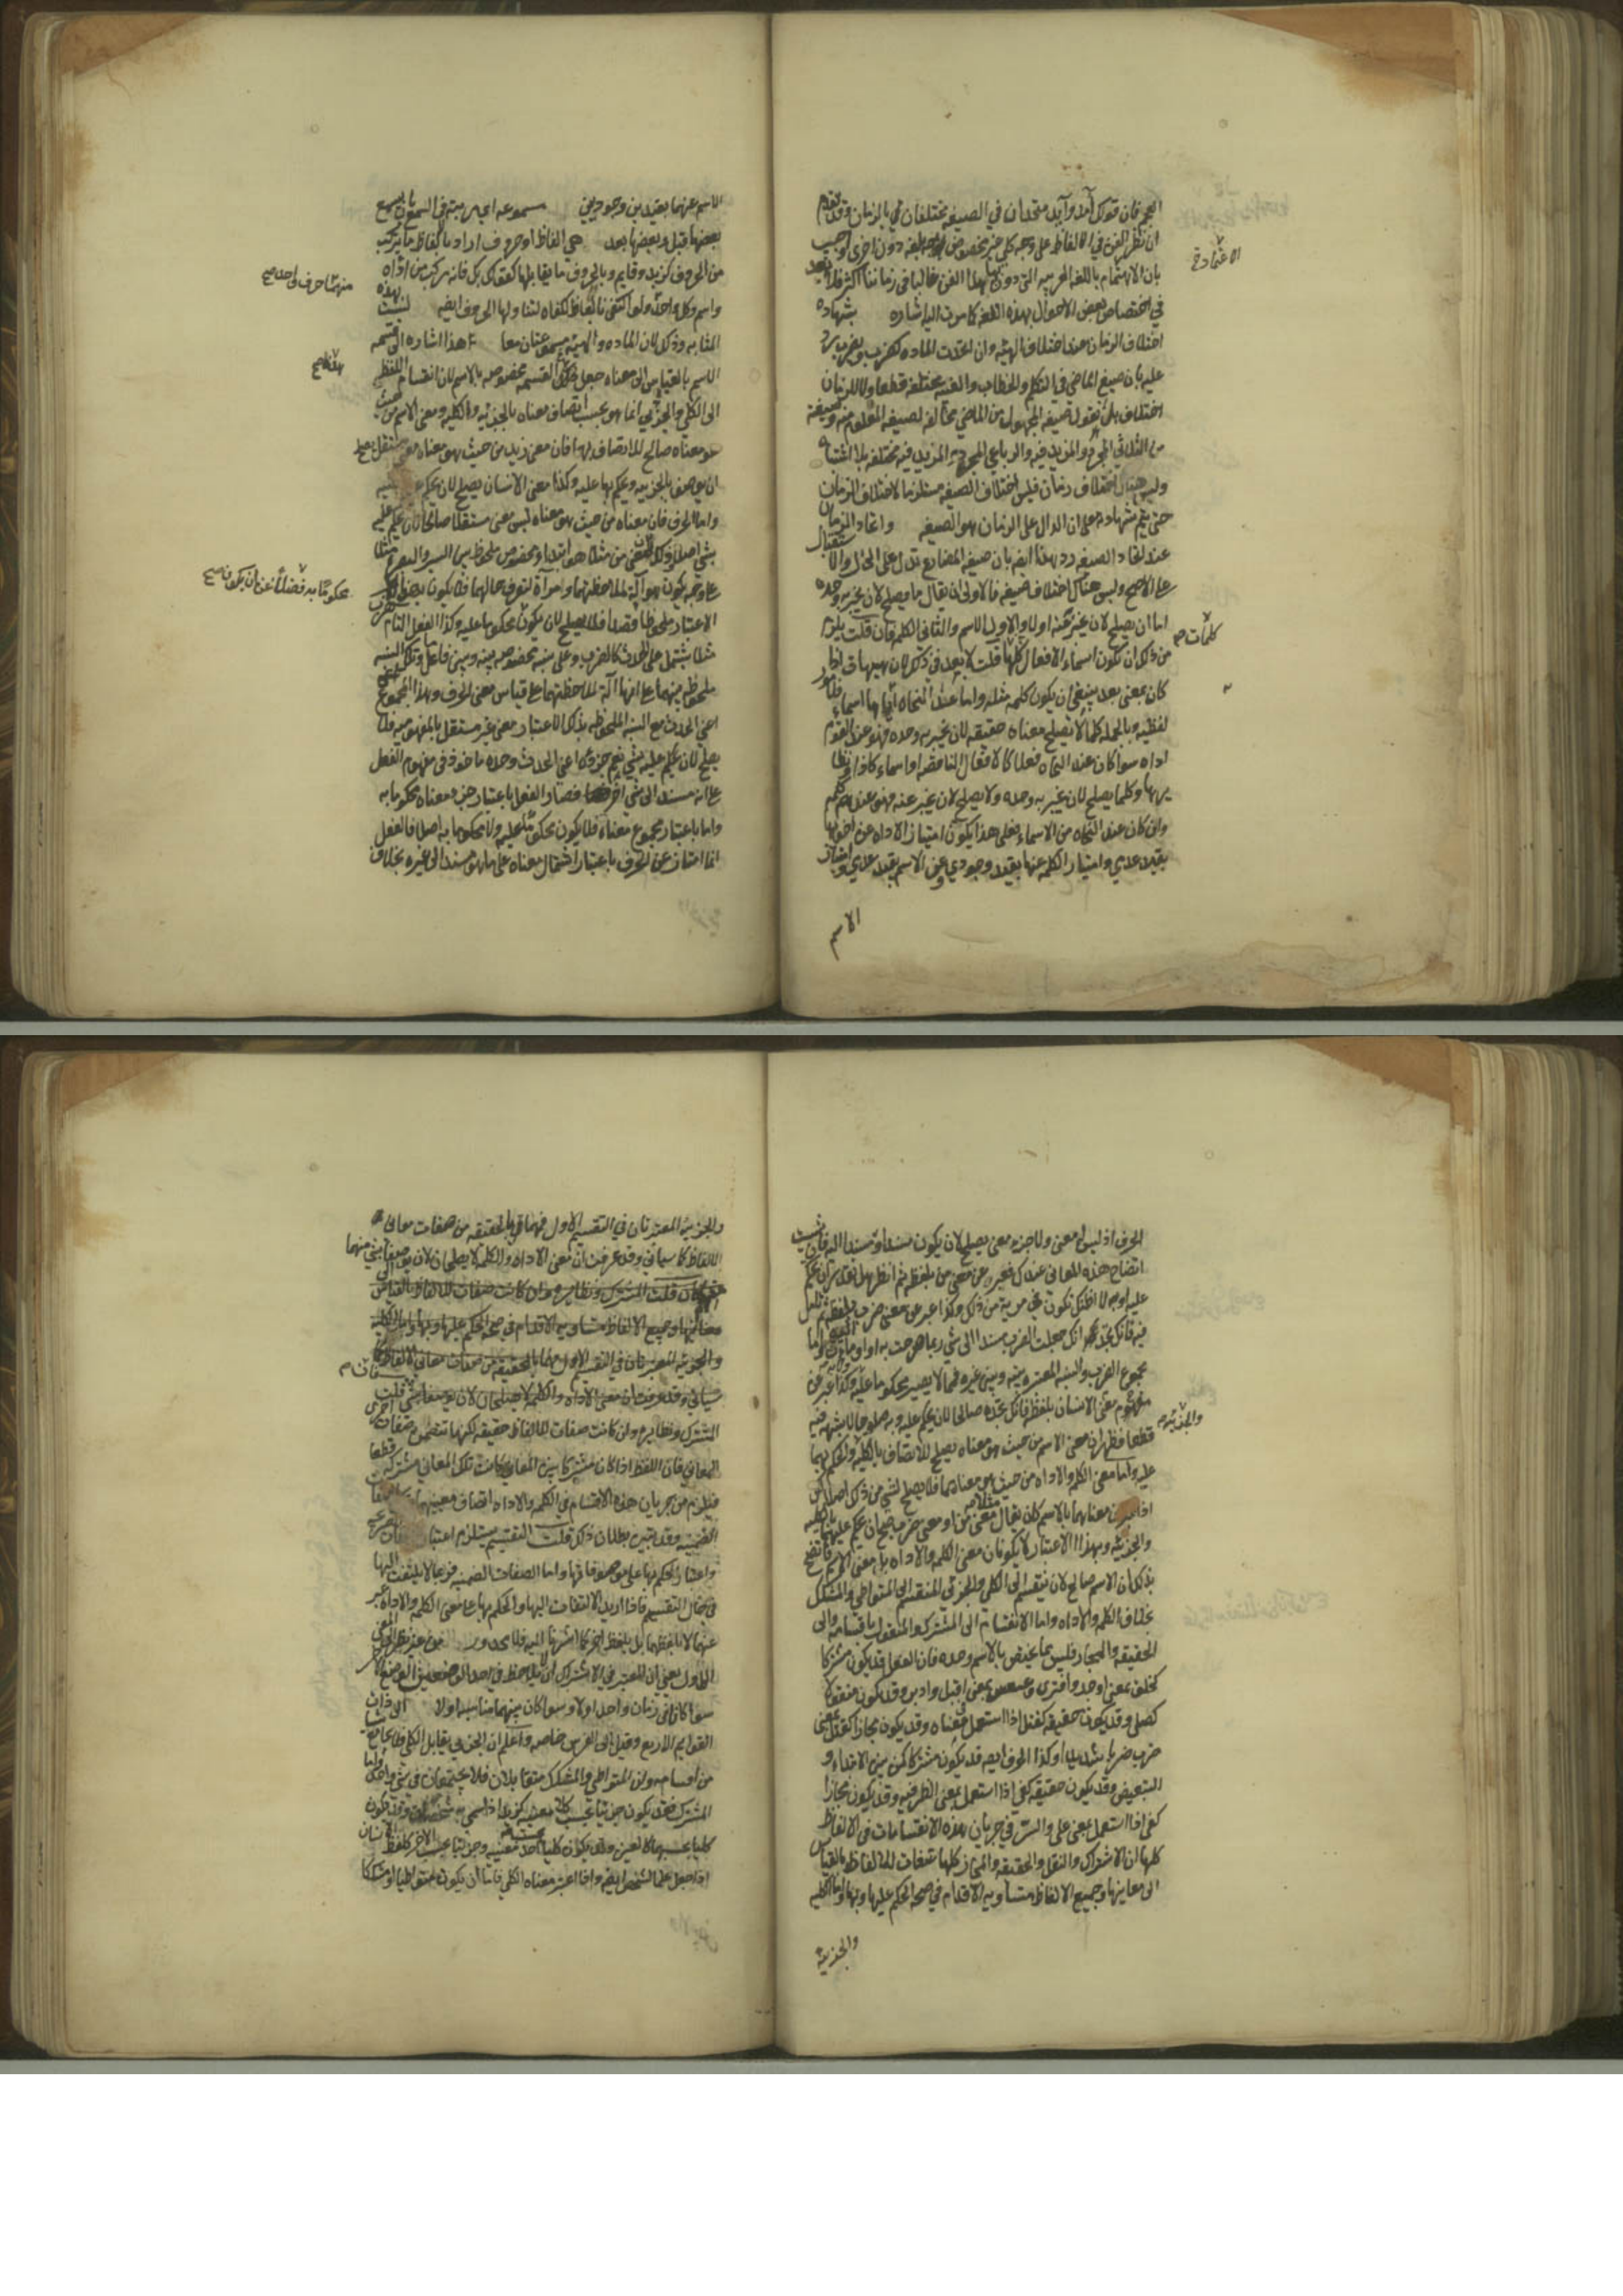 العجم فان قولك آمد وآيد متحدان في الصيغه مختلفان في الزمان وقد تقدم
ان نظر الفن في الالفاظ على وجه كلي غير مخصوص بلغه دون اخرى اجيب
بان الاهتمام باللغه العربيه التي دون بها هذا الفن غالبا في زماننا اكثر فلا بعد
في اختصاص بعض الاحوال بهذه اللغه كما مرت اليه اشاره بشهاده
اختلاف الزمان عند اختلاف الهيئه وان اتحدت الماده كضرب ويضرب يرد
عليه بان صيغ الماضي في التكلم والخطاب والغيبه مختلفه قطعا ولا للزمان
اختلاف بل نقول صيغه المجهول من الماضي مخالفه لصيغه المعلوم منه وصيغته
من الثلاثي المجرد والمزيد فيه والرباعي المجرد والمزيد فيه مختلفه بلا اشتباه
وليس هناك اختلاف زمان فليس اختلاف الصيغه مستلزما لاختلاف الزمان
حتى يتم شهادته على ان الدال على الزمان هو الصيغه واتحاد الزمان
عند اتحاد الصيغه رد بهذا ايضا بان صيغه المضارع تدل على الحال والاستقبال
على الاصح وليس هناك اختلاف صيغه فالاولى ان يقال ما يصلح لان يخبر به وحده
اما ان يصلح لان يخبر عنه اولا والاول الاسم والثاني الكلمه فان قلت يلزم
من ذلك ان تكون اسماء الافعال كلها قلت لا بعد في ذلك لان هيهات اذا
كان بمعنى بعد ينبغي ان يكون كلمه مثله واما عند النحاه انها اسماء
لفظيه وبالجمله كلما لا يصلح معناه حقيقه لان يخبر به وحده فهو عند القوم
اداه سوا كان عند النحاه فعلا كالافعال الناقصه او اسماء كاذا ونظا
يرها وكلما يصلح لان يخبر به وحده ولا يصلح لان يخبر عنه فهو عندهم كلم
وان كان عند النحاه من الاسماء فعلى هذا يكون امتياز الاداه عن اخويها
بقيد عدمي وامتياز الكلمه عنها بقيد وجودي وعن الاسم بقيد عدمي وامتياز
الاسم
كلمات صح
الاسم عنهما بقيدين وجوديين مسموعه اي مرتبه في السمع بان يسمع
بعضها قبل وبعضها بعد هي الفاظ او حروف اراد بالفاظ ما يتركب
من الحروف كزيد وقايم وبالحروف ما يقابلها كقولك بك فانه مركب من اداه
واسم وكل واحد ولو اكتفى بالفاظ لكفاه لتناولها الحروف ايضا ليست بهذه
المثابه وذلك لان الماده والهيئه مسموعتان معا هذا اشاره الى قسمه
الاسم بالقياس الى معناه جعل هذه القسمه مخصوصه بالاسم لان انقسام اللفظ
الى الكلي والجزئي انما هو بحسب اتصاف معناه بالجزئيه والكليه ومعنى الاسم من حيث
هو معناه صالح للاتصاف بها فان معنى زيد من حيث هو معناه معنى مستقل يصلح
ان يوصف بالجزييه ويحكم بها عليه وكذا معنى الانسان يصلح لان يحكم عليه
واما الحرف فان معناه من حيث هو معناه ليس معنى مستقلا صالحا لان يحكم عليه
بشي اصلا وذلك لان معنى من مثلا هو ابتداء مخصوص ملحوظ بين السير والبصره مثلا
على وجه يكون هو آله لملاحظتهما ومرآة لتعرف حالهما فلا يكون بهذا
الاعتبار ملحوظا قصدا فلا يصلح لان يكون محكوما عليه وكذا الفعل التام كضرب
مثلا يشتمل على الحدث كالضرب وعلى نسبه مخصوصه بينه وبين فاعل وتلك النسبه
ملحوظه بينهما على انها آلة لملاحظتهما على قياس معنى الحرف وهذا المجموع
اعني الحدث مع النسبه الملحوظه بذلك الاعتبار معنى غير مستقل بالمفهوميه فلا
يصلح لان يحكم عليه بشي نعم جزؤه اعني الحدث وحده ماخوذ في مفهوم الفعل
على انه مسند الى شي اخر فصار الفعل باعتبار جزء معناه محكوما به
واما باعتبار مجموع معناه فلا يكون محكوما عليه ولا محكوما به اصلا فالفعل
انما امتاز عن الحرف باعتبار اشتمال معناه على ما هو مسند الى غيره بخلاف
منهما حرف واحد صح
محكوما به فضلا عن ان يكون صح
الحرف اذ ليس له معنى ولا جزء معنى يصلح لان يكون مسندا او مسندا اليه فان شيت
اتضاح هذه المعاني عندك فعبر عن معنى من بلفظه ثم انظر هل تقدر ان تحكم
عليه او به لا اظنك تكون في مرية من ذلك وكذا عبر عن معنى ضرب بلفظه ثم تامل
فيه فانك تجد انك جعلت الضرب مسندا الى شي
مجموع الضرب والنسبه المعتبره بينه وبين غيره فمما لا يصير محكوما عليه وكذا عبر عن
مفهوم معنى الانسان بلفظه فانك تجده صالحا لان يحكم عليه وبه صلوحا لا شبهه فيه
قطعا فظهر ان معنى الاسم من حيث هو معناه يصلح للاتصاف بالكليه والحكم بهما
عليه واما معنى الكلم والاداه من حيث هو معناهما فلا يصلح لشي من ذلك اصلا لكن
اذا عبرت عن معناهما بالاسم كان يقال معنى من او معنى ضرب صح ان يحكم عليهما بالكليه
والجزئيه وبهذا الاعتبار لا يكونان معنى الكلمه والاداه بل معنى الاسم فاتضح
بذلك ان الاسم صالح لان ينقسم الى الكلي والجزئي المنقسم الى المتواطي والمشكك
بخلاف الكلم والاداه واما الانقسام الى المشترك والمنقول باقسامه والى
الحقيقه والمجاز فليس مما يختص بالاسم وحده فان الفعل قد يكون مشتركا
كخلق بمعنى اوجد وافترى وعسعس بمعنى اقبل وادبر وقد يكون منقولا
كصلى وقد يكون حقيقه كقتل اذا استعمل في معناه وقد يكون مجازا كقتل بمعنى
ضرب ضربا شديدا وكذا الحرف ايضا قد يكون مشتركا كمن بين الابتداء و
التبعيض وقد يكون حقيقه كفي اذا استعمل بمعنى الظرفيه وقد يكون مجازا
كفي اذا استعمل بمعنى على والسر في جريان هذه الانقسامات في الالفاظ
كلها ان الاشتراك والنقل والحقيقه والمجاز كلها صفات للالفاظ بالقياس
الى معانيها وجميع الالفاظ متساويه الاقدام في صحه الحكم عليها وبها واما الكليه
والجزئيه
والجزئيه صح
والجزئيه المعتبرتان في التقسيم الاول فهما بالحقيقه من صفات معاني
الالفاظ كما سياتي وقد عرفت ان معنى الاداه والكلمه لا يصلحان لان يوصفا بشي منهما
معانيها وجميع الالفاظ متساويه الاقدام في صحه الحكم عليها وبها واما الكليه
والجزئيه المعتبرتان في التقسيم الاول فهما بالحقيقه من صفات معاني الالفاظ كما
سياتي وقد عرفت ان معنى الاداه والكلمه لا يصلحان لان يوصفا بشي قلت
المشترك ونظايره وان كانت صفات للالفاظ حقيقه لكنها تتضمن صفات اخرى
للمعاني فان اللفظ اذا كان مشتركا بين المعاني كانت تلك المعاني مشتركه قطعا
فيلزم من جريان هذه الاقسام في الكلمه والاداه اتصاف معنييهما
الضمنيه وقد تبين بطلان ذلك قلت التقسيم يستلزم اعتبار
واعتبار الحكم بها على موصوفاتها واما الصفات الضمنيه فربما لا يلتفت اليها
في حال التقسيم فاذا اريد الالتفات اليها والحكم بها على معنى الكلم والاداه عبر
عنهما لا بلفظهما بل بلفظ اخر كما اشرنا اليه فلا محذور
الاول يعني ان المعتبر في الاشتراك ان لا يلاحظ في احد الوضعين الوضع الاخر
سوا كانا في زمان واحد او لا وسوا كان بينهما مناسبه او لا الى ذات
القوايم الاربع وقيل الى الفرس خاصه واعلم ان الجزئي يقابل الكلي فلا يجامع شيئا
من اقسامه وان المتواطي والمشكك متقابلان فلا يجتمعان في شي واحد واما
المشترك فقد يكون جزئيا بحسب كلا معنييه كزيد اذا سمي به شخصان وقد يكون
كليا بحسبهما كالعين وقد يكون كليا بحسب احد معنييه وجزئيا بحسب الاخر كلفظ الانسان
اذا جعل علما لشخص ايضا واذا اعتبر معناه الكلي فاما ان يكون متواطيا او مشككا